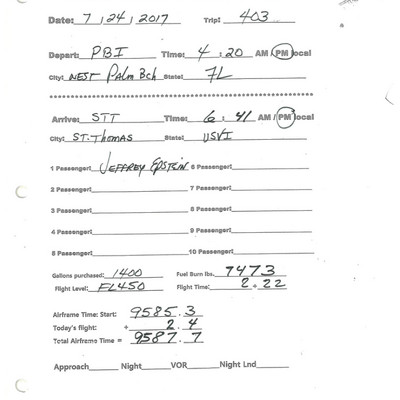 Date: 7/24/2017 Trip: 403
Depart: PBI Time: 4:20 AM/PM local
City: WEST PALM Bch State: FL
Arrive: STT Time: 6:41 AM/PM local
City: ST. THOMAS State: USVI
1 Passenger: JEFFREY EPSTEIN 6 Passenger:
2 Passenger: 7 Passenger:
3 Passenger: 8 Passenger:
4 Passenger: 9 Passenger:
5 Passenger: 10 Passenger:
Gallons purchased: 1400 Fuel Burn lbs. 7473
Flight Level: FL450 Flight Time: 2.22
Airframe Time: Start: 9585.3
Today's flight: + 2.4
Total Airframe Time = 9587.7
Approach Night VOR Night Lnd